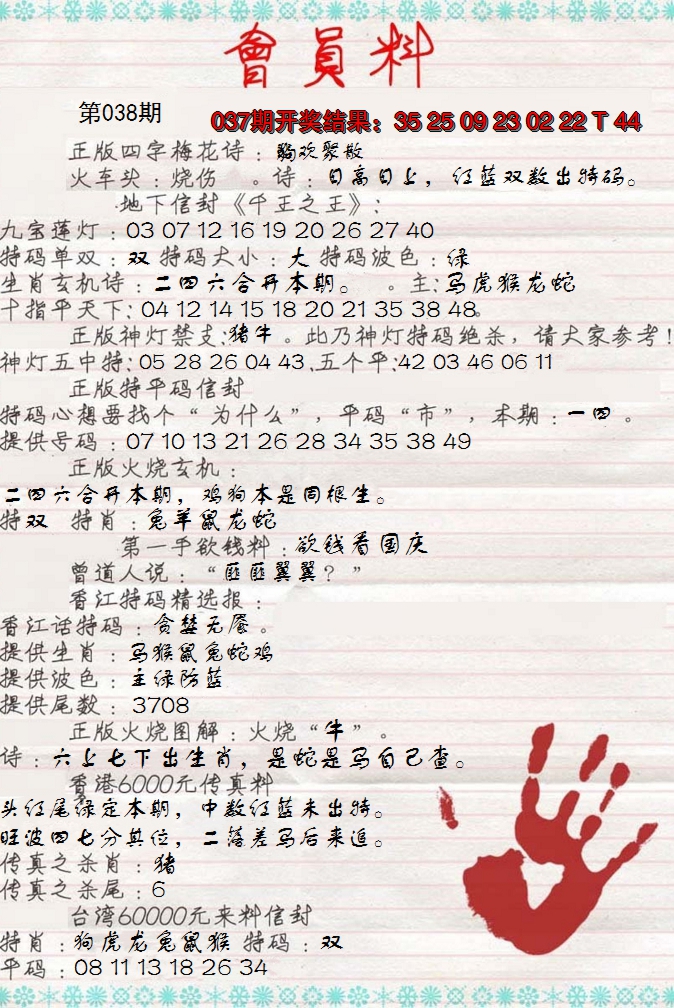 會員料
第038期
037期开奖结果：35 25 09 23 02 22 T 44
正版四字梅花诗：鸡欢聚散
火车头：烧伤 。诗：日高日上，红蓝双数出特码。
地下信封《千王之王》：
九宝莲灯：03 07 12 16 19 20 26 27 40
特码单双：双 特码大小：大 特码波色：绿
生肖玄机诗：二四六合开本期。 。主：马虎猴龙蛇
十指平天下：04 12 14 15 18 20 21 35 38 48。
正版神灯禁支：猪牛 。此乃神灯特码绝杀，请大家参考！
神灯五中特：05 28 26 04 43 .五个平：42 03 46 06 11
正版特平码信封
特码心想要找个“为什么”，平码“市”，本期：一四 。
提供号码：07 10 13 21 26 28 34 35 38 49
正版火烧玄机：
二四六合开本期，鸡狗本是同根生。
特双 特肖：兔羊鼠龙蛇
第一手欲钱料：欲钱看国庆
曾道人说：“匪匪翼翼？”
香江特码精选报：
香江话特码：贪婪无魇。
提供生肖：马猴鼠兔蛇鸡
提供波色：主绿防蓝
提供尾数：3708
正版火烧图解：火烧“牛”。
诗：六上七下出生肖，是蛇是马自己查。
香港6000元传真料
头红尾绿定本期，中数红蓝未出特。
旺波四七分其位，二落差马后来追。
传真之杀肖：猪
传真之杀尾：6
台湾60000元来料信封
特肖：狗虎龙兔鼠猴 特码：双
平码：08 11 13 18 26 34